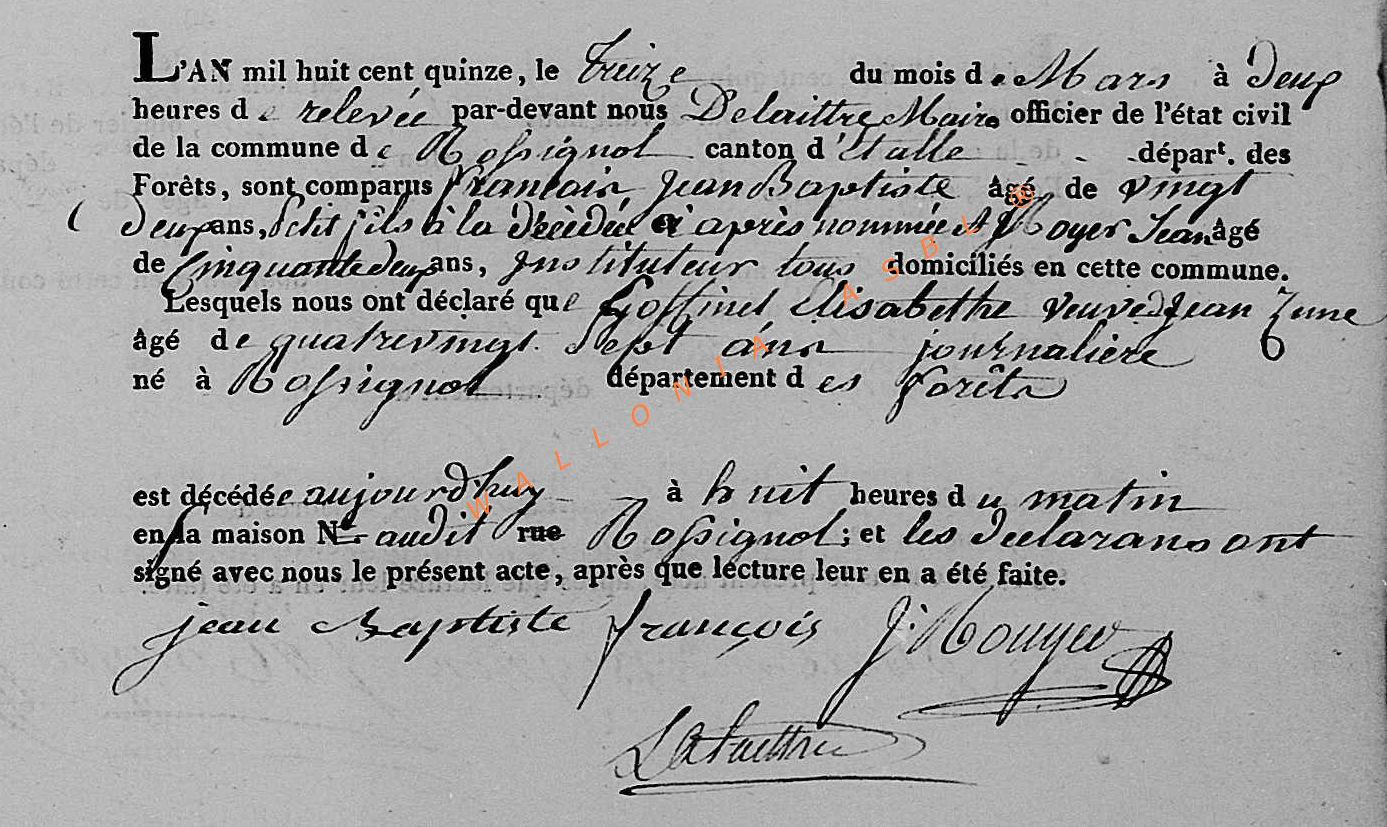 L'AN mil huit cent quinze, le treize du mois de Mars à deux
heures de relevée par-devant nous Delaittre Maire officier de l'état civil
de la commune de Rossignol canton d'Etalle départ. des
Forêts, sont comparus François Jean Baptiste âgé de vingt
deux ans, petit fils à la décédée ci après nommée et Royer Jean âgé
de cinquante deux ans, Instituteur tous domiciliés en cette commune.
Lesquels nous ont déclaré que Goffinet Elisabethe veuve Jean
âgé de quatre vingt sept ans journaliere
né à Rossignol département des forêts
est décédée aujourd'huy à huit heures du matin
en la maison N° audit rue Rossignol; et les declarans ont
signé avec nous le présent acte, après que lecture leur en a été faite.
jean Baptiste françois J: Rouyer
Delaittre
WALLONIA ASBL ©